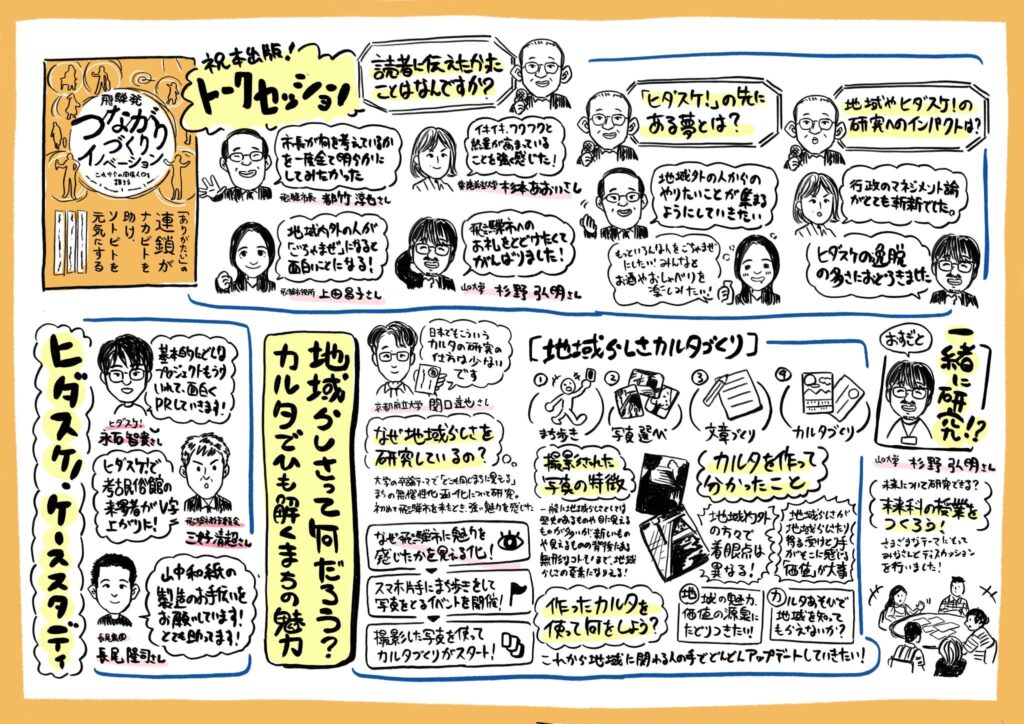 祝本出版!
トークセッション
飛騨発
つながり
づくり
イノベーション
「ありがたい」の
連鎖が
ナカビトを
助け、
ソトビトを
元気にする
読者に伝えたかった
ことはなんですか?
市長が何を考えているか
を一度全て明らかに
してみたかった
飛騨市長 都竹淳也さん
イキイキ、ワクワクと
熱量が高まっている
ことを強く感じた!
杉本あおいさん
地域内外の人が
“ごちゃまぜ”になると
面白いことになる!
飛騨市役所 上田昌子さん
飛騨市への
お礼をとどけたくて
がんばりました!
山口大学 杉野弘明さん
「ヒダスケ!」の先に
ある夢とは?
地域外の人からの
やりたいことが集まる
ようにしていきたい
もっといろんな人をごちゃまぜ
にしたい!みんなと
お酒やおしゃべりを
楽しみたい!
地域やヒダスケ!の
研究へのインパクトは?
行政のマネジメント論
がとても斬新でした。
ヒダスケの逸脱
の多さにおどろきました
ヒダスケ!ケーススタディ
基本的にどんな
プロジェクトもうけ
いれて、面白く
PRしていきます!
ヒダスケ!
永石智貴さん
ヒダスケ!で
考古民俗館の
来場者がV字
上がりに!
飛騨市教育委員会
三好清超さん
山中和紙の
製造のお手伝いを
お願いしています!
とても助かってます!
長尾隆司さん
地域らしさって何だろう?
カルタでひも解くまちの魅力
日本でもこういう
カルタの研究の
仕方は少ない
です
京都府立大学 関口達也さん
なぜ地域らしさを
研究しているの?
大学の卒論テーマで「どこも同じまちに見える」
まちの無個性化・画一化について研究。
初めて飛騨市を来たとき、強い魅力を感じた
なぜ飛騨市に魅力を
感じたかを見える化!
スマホ片手にまち歩きをして
写真をとるイベントを開催!
撮影した写真を使って
カルタづくりがスタート!
[地域らしさカルタづくり]
① まち歩き
② 写真選び
③ 文章づくり
④ カルタづくり
撮影された
写真の特徴
一般に地域らしさとしては
歴史のあるものや目に見える
ものが多いが、新しいもの
や見えるものの背後にある
無形なコト・モノまで、地域
らしさの要素になりえる!
カルタを作って
分かったこと
地域内外
の方々で
着眼点は
異なる!
地域らしさが
地域らしさたり
得る、受け手
がそこに感じる
「価値」が大事
作ったカルタを
使って何をしよう?
地域の魅力、
価値の源泉に
たどりつきたい!
カルタあそびで
地域を知って
もらえないか?
これから地域に関わる人の手でどんどんアップデートしていきたい!
一緒に研究!?
おすぎと
山口大学 杉野弘明さん
未来について研究できる?
未来科の授業を
つくろう!
さまざまなテーマについて
みなさんとディスカッション
を行いました!